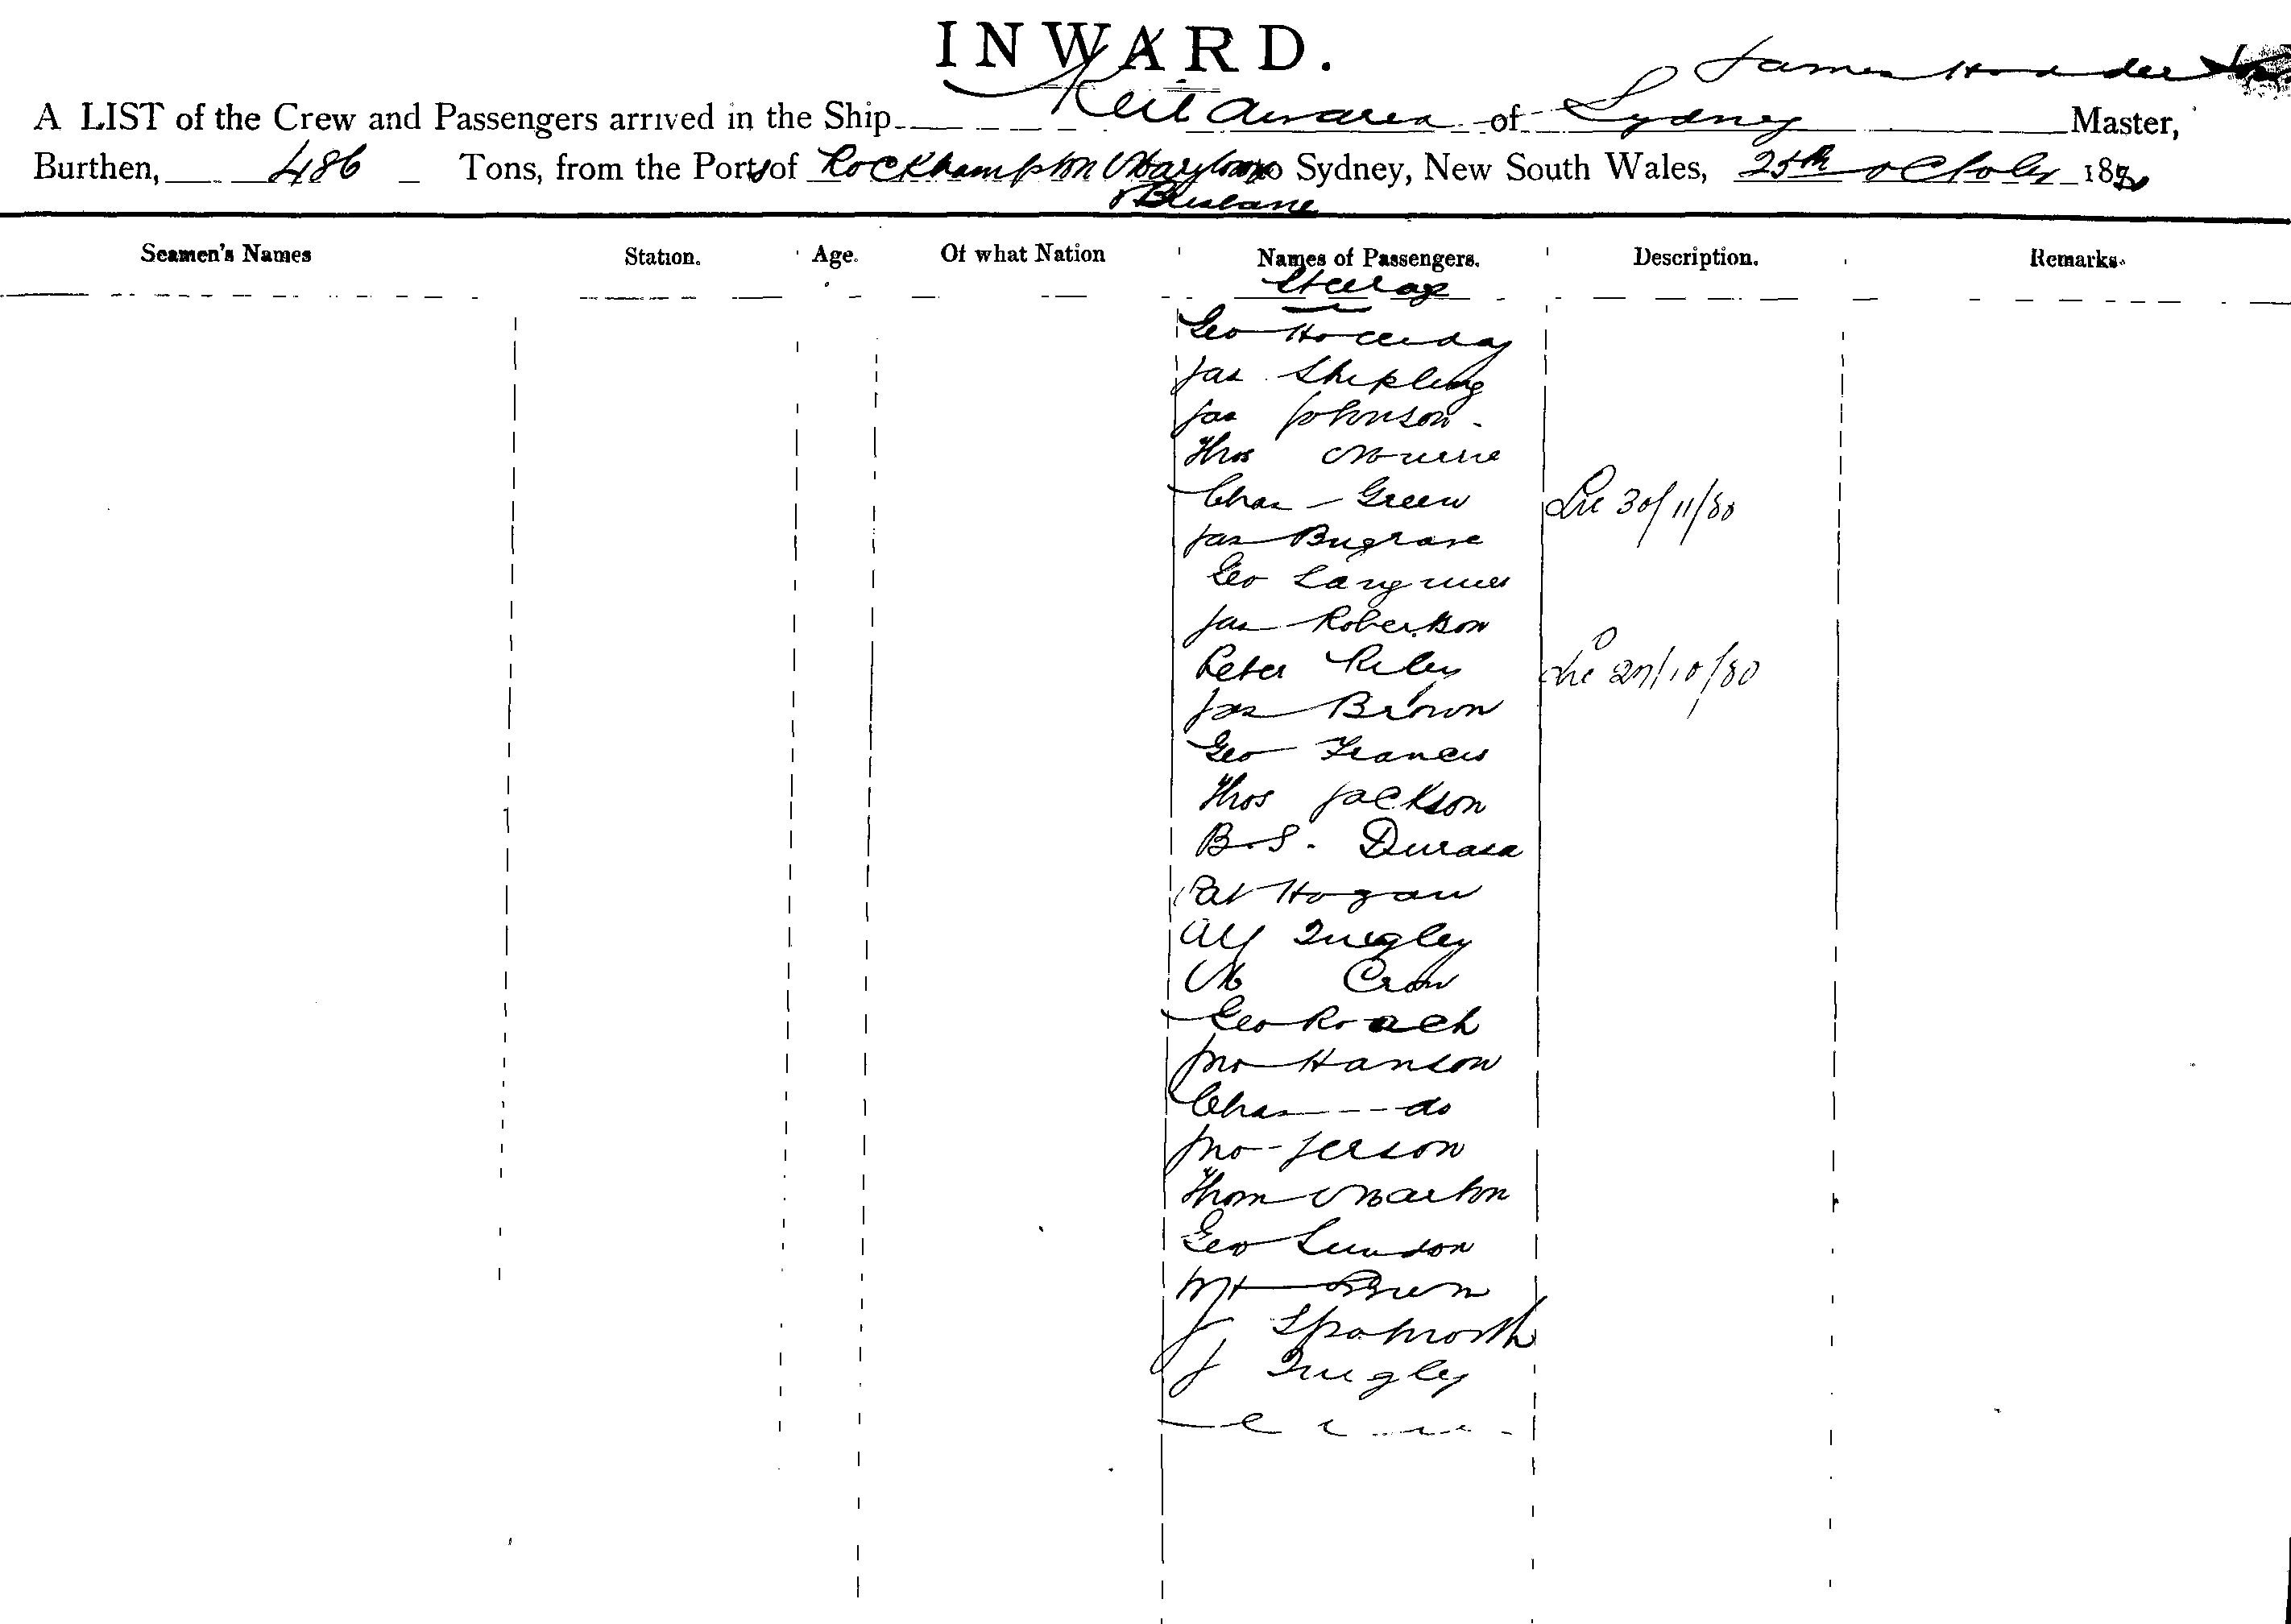 INWARD.
James
A LIST of the Crew and Passengers arrived in the Ship Keilawarra of Sydney Master,
Burthen, 486 Tons, from the Ports of Rockhampton Maryboro to Sydney, New South Wales, 25th October 1880
& Brisbane
Seamen's Names Station. Age. Of what Nation Names of Passengers. Description. Remarks.
Steerage
Geo Holliday
Jas Shipling
Jas Johnson
Thos
Chas Green Lic 30/11/80
Jas Bugrave
Geo
Jas Robertson
Peter Riley Lic 27/10/80
Jas Brown
Geo Francis
Thos Jackson
B. S.
Pat Hogan
Alf Quigley
M Crow
Geo Roach
Jno Hanson
Chas do
Jno Jerson
Thom Marton
Geo
J
J Quigley